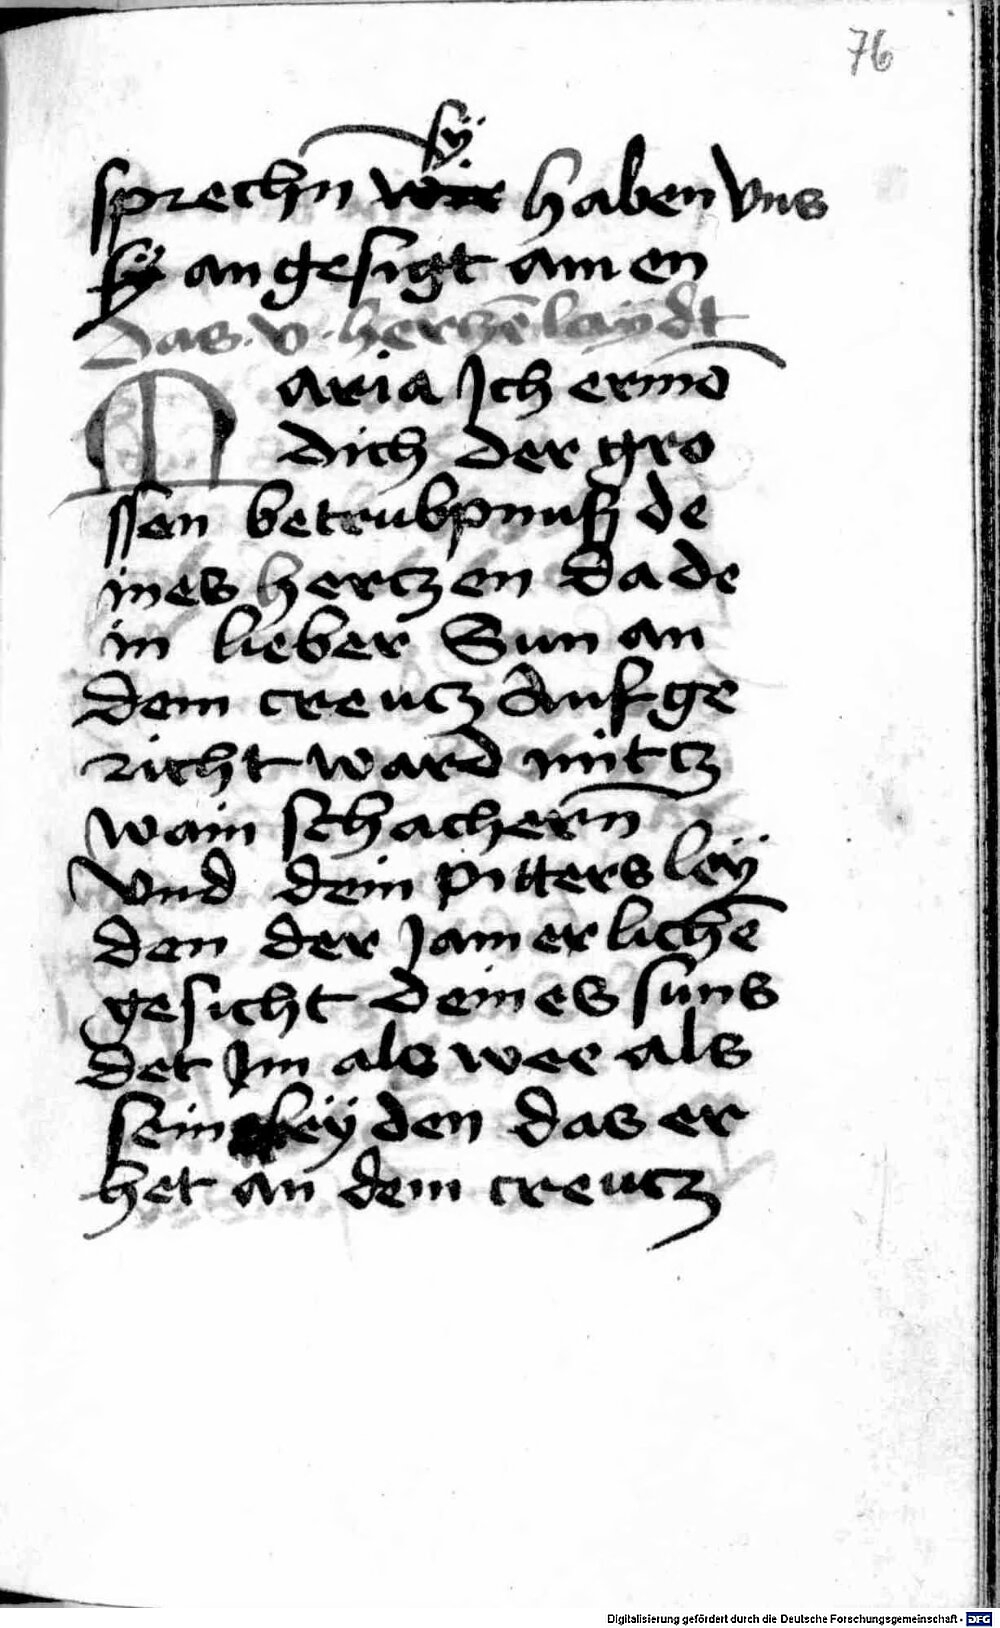 76
sÿ
sprechn̄ wir haben vns
sÿ an gesigt amen
Das . v . hertzē laÿdt
Maria Jch ermō
dich der gro
ssen betrubpnuß de
ines hertzen Da de
in lieber Sun an
dem creutz Auf ge
richt ward mit tz
wain schachern̄
vnd dein pitters leÿ
den der Jamerlichē
gesicht deines suns
det Jm als wee als
sein leÿden das er
het an dem creutz
Digitalisierung gefördert durch die Deutsche Forschungsgemeinschaft - DFG